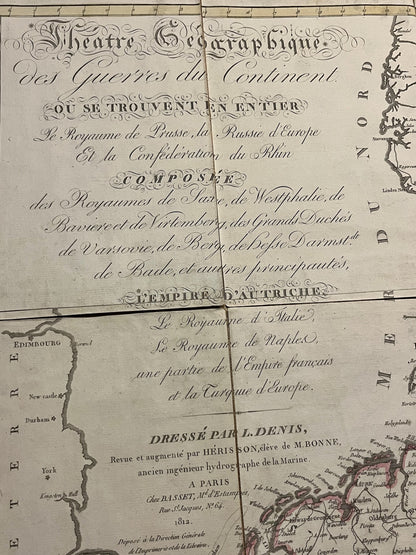 Théatre Géographique
des Guerres du Continent
OÙ SE TROUVENT EN ENTIER
Le Royaume de Prusse, la Russie d'Europe
Et la Confédération du Rhin
COMPOSÉE
des Royaumes de Saxe, de Westphalie, de
Baviere et de Virtemberg, des Grands Duchés
de Varsovie, de Berg, de Hesse Darmst.dt
de Bade, et autres principautés,
L'EMPIRE D'AUTRICHE
Le Royaume d'Italie,
Le Royaume de Naples,
une partie de l'Empire français
et la Turquie d'Europe.
DRESSÉ PAR L. DENIS,
Revue et augmenté par HÉRISSON, élève de M. BONNE,
ancien ingénieur hydrographe de la Marine.
A PARIS
Chez BASSET, M.d d'Estampes,
Rue S.t Jacques, N.o 64.
1812.
Déposé à la Direction Générale
de l'Imprimerie et de la Librairie.
MER DU NORD
EDIMBOURG
Newcastle
Durham
York
ETERRE
Oldenburg